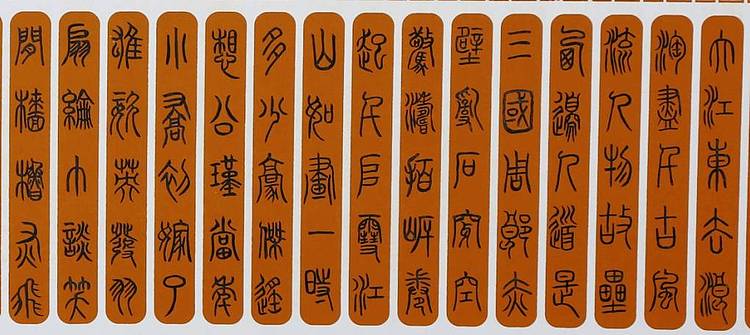 大江東去浪
淘盡千古風
流人物故壘
西邊人道是
三國周郎赤
壁亂石穿空
驚濤拍岸卷
起千堆雪江
山如畫一時
多少豪傑遙
想公瑾當年
小喬初嫁了
雄姿英發羽
扇綸巾談笑
間檣櫓灰飛